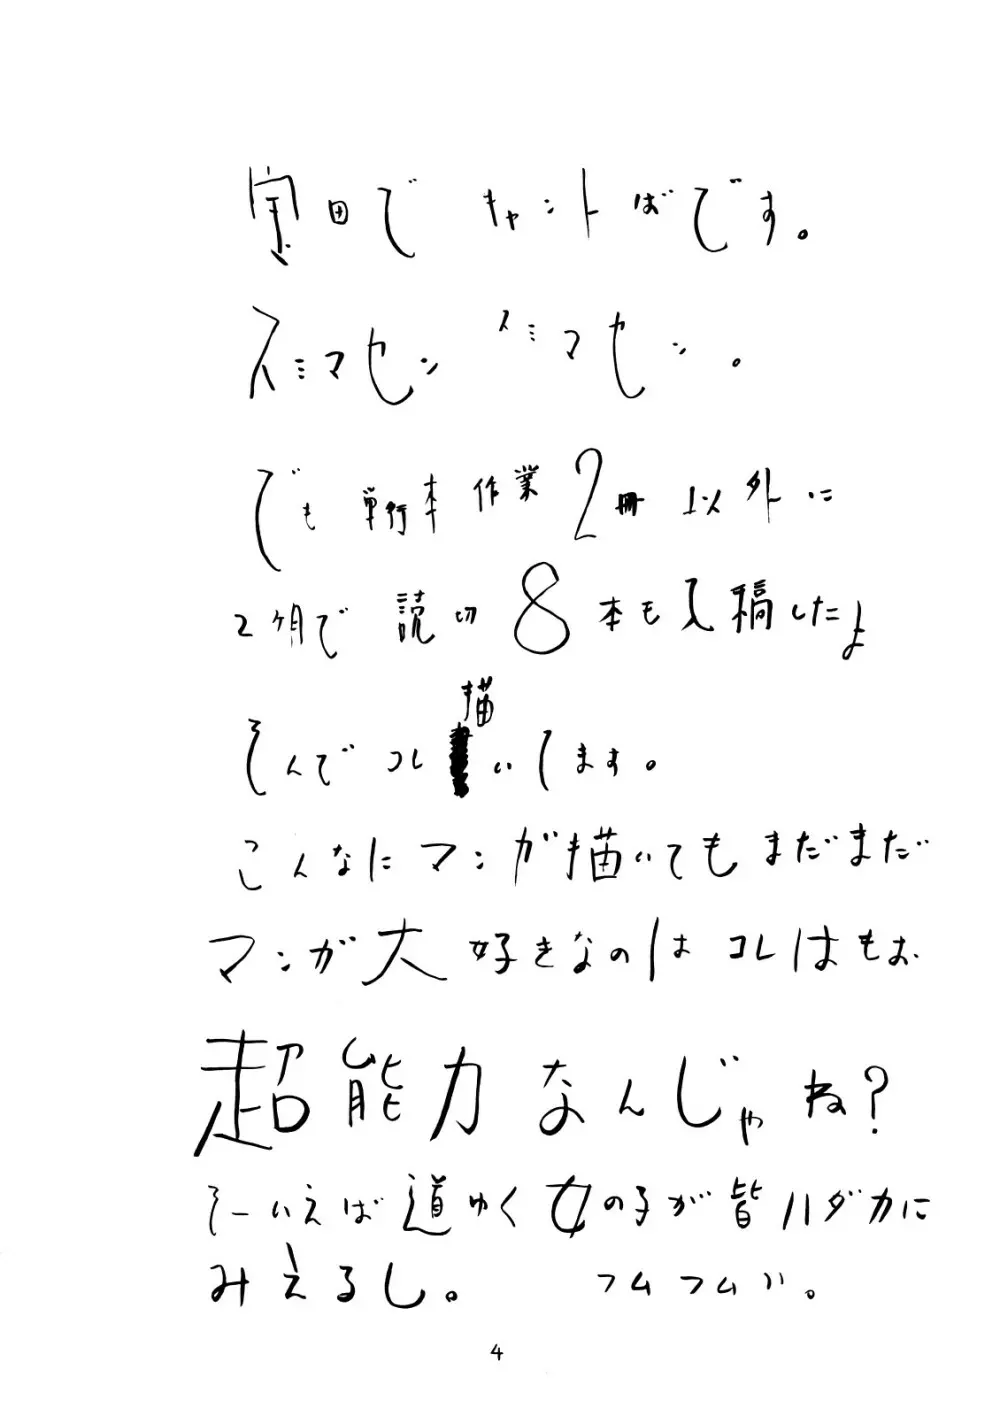 室田で キャントばです。
スミマセン スミマセン。
でも 単行本 作業 2冊 以外に
2ヶ月で 読切 8本も入稿したよ
そんで コレ描いてます。
こんなにマンガ描いてもまだまだ
マンガ大好きなのは コレはもお
超能力なんじゃね?
そーいえば道ゆく女の子が皆ハダカに
みえるし。 フムフム
4